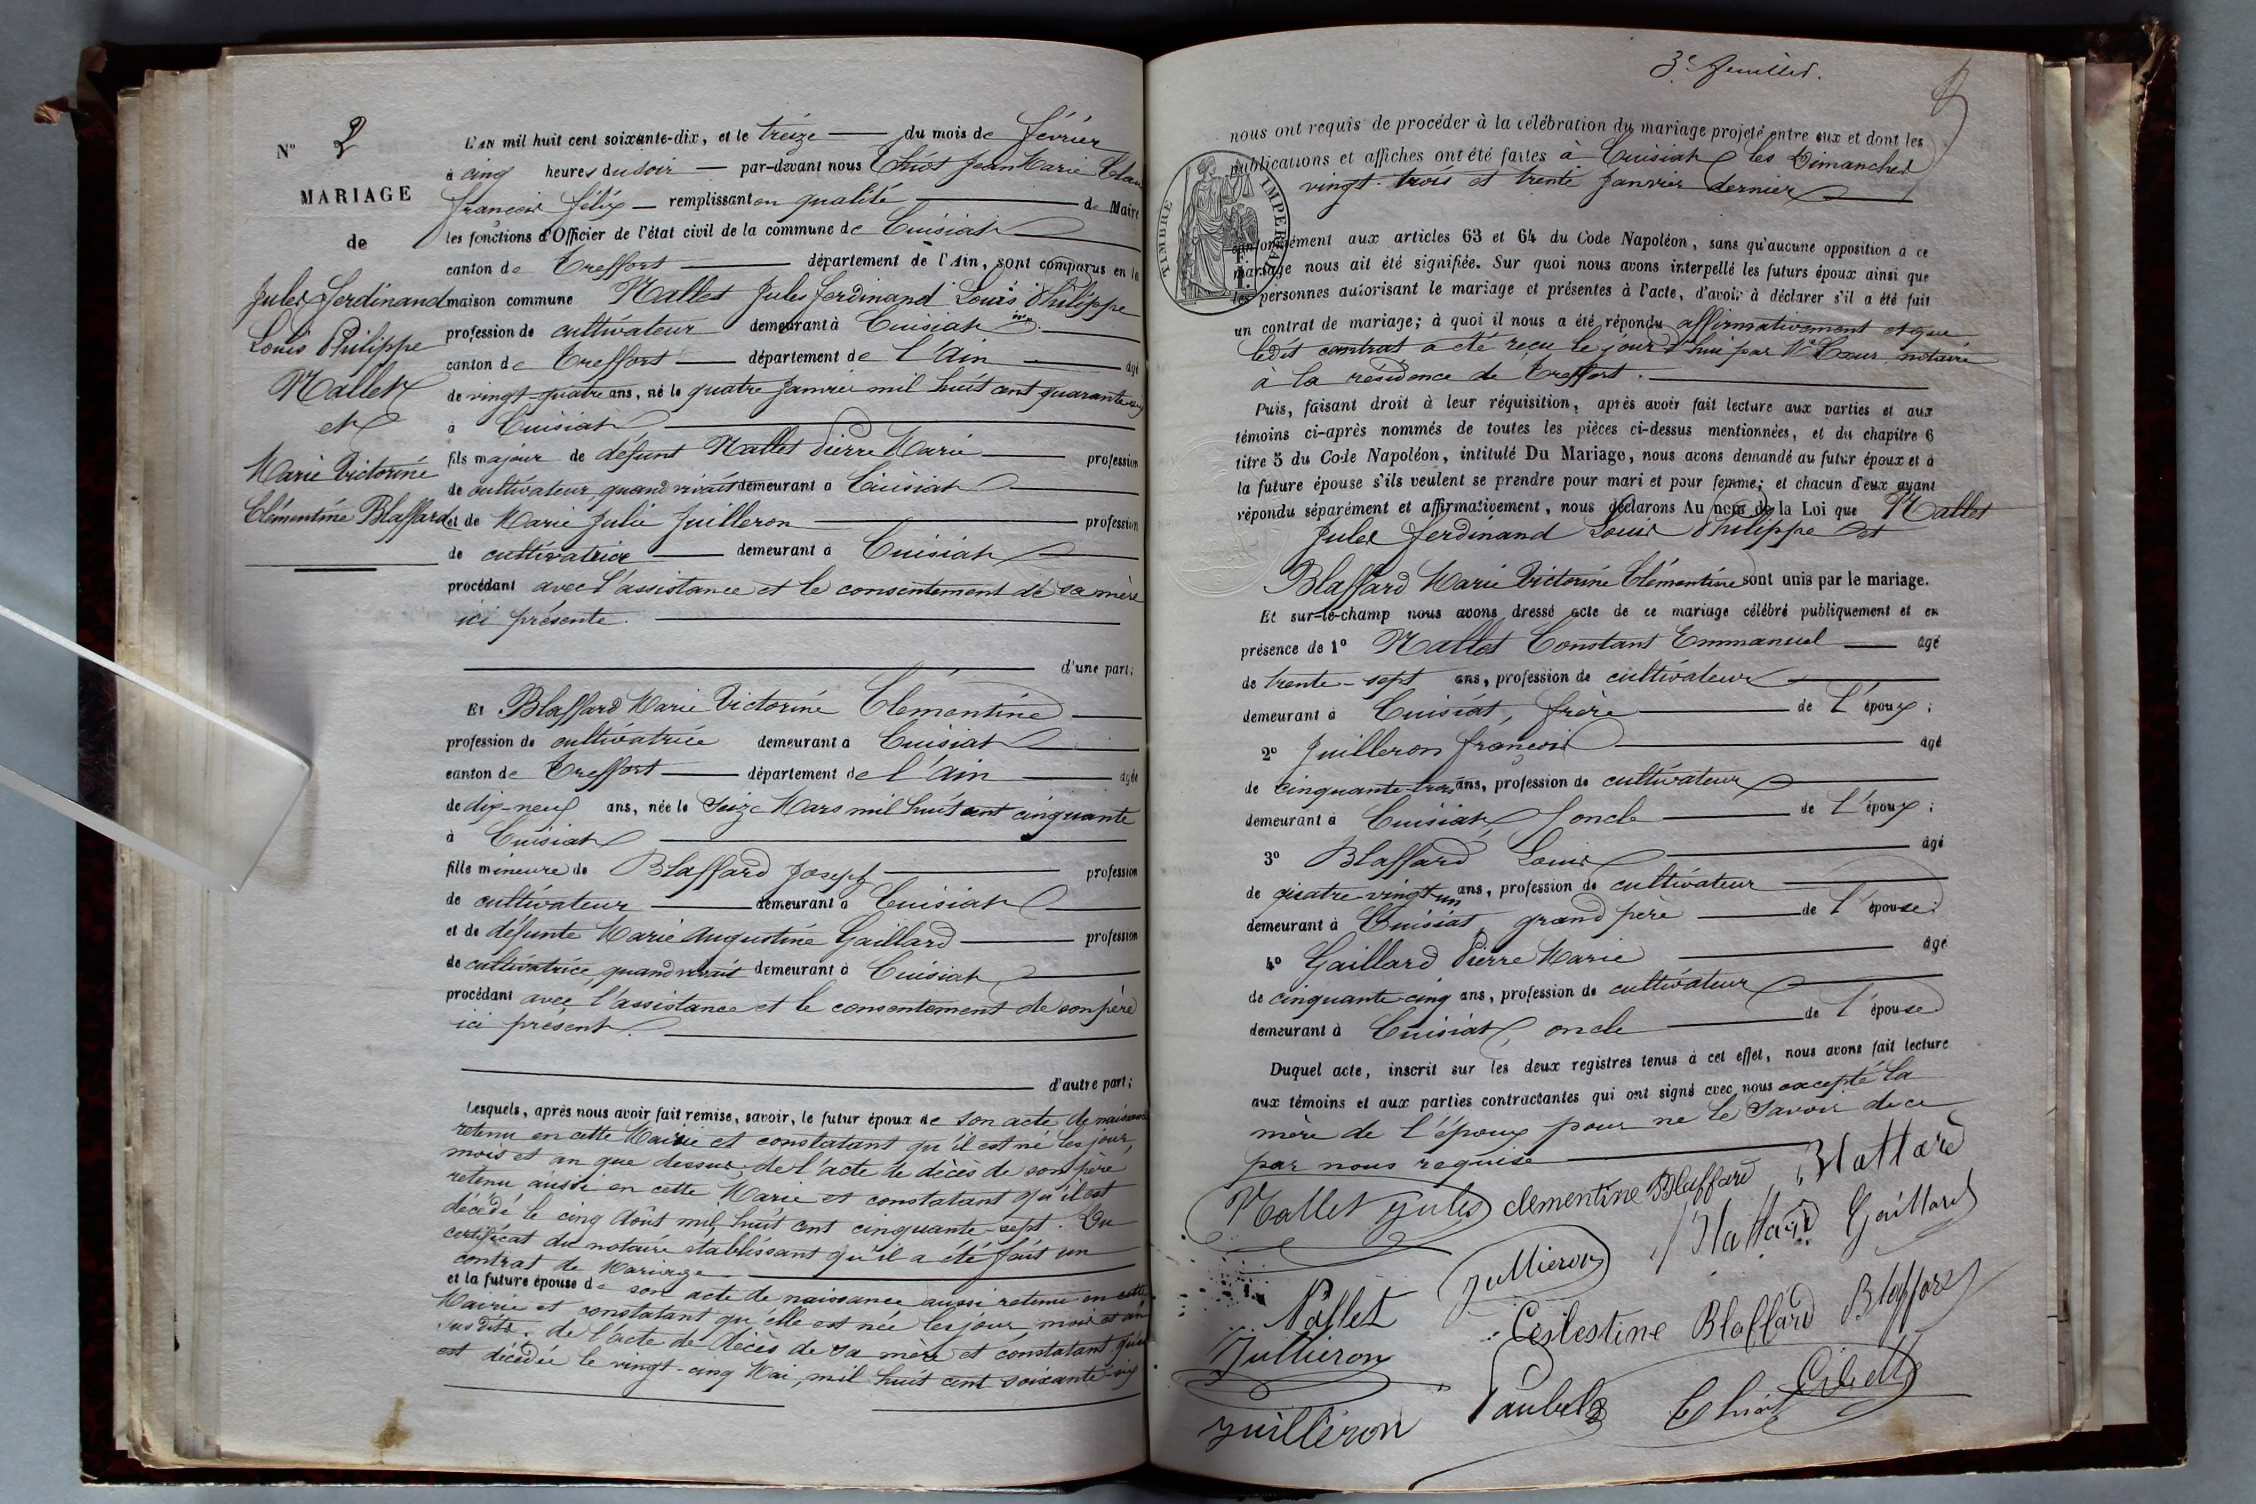 N° 2
MARIAGE
de
Jules Ferdinand
Louis Philippe
Mallet
et
Marie Victorine
Clémentine Blaffard
L'AN mil huit cent soixante-dix, et le treize du mois de février
à cinq heures du soir par-devant nous Chiot Jean Marie
françois félix remplissant en qualité de Maire
les fonctions d'Officier de l'état civil de la commune de Cuisiat
canton de Treffort département de l'Ain, sont comparus en la
maison commune Mallet Jules ferdinand Louis Philippe
profession de cultivateur demeurant à Cuisiat
canton de Treffort département de l'Ain âgé
de vingt-quatre ans, né le quatre Janvier mil huit cent quarante six
à Cuisiat
fils majeur de défunt Mallet Pierre Marie profession
de cultivateur, quand vivait demeurant à Cuisiat
et de Marie Julie Juilleron profession
de cultivatrice demeurant à Cuisiat
procédant avec l'assistance et le consentement de sa mère
ici présente.
d'une part;
Et Blaffard Marie Victorine Clémentine
profession de cultivatrice demeurant à Cuisiat
canton de Treffort département de l'Ain âgée
de dix-neuf ans, née le Seize Mars mil huit cent cinquante
à Cuisiat
fille mineure de Blaffard Joseph profession
de cultivateur demeurant à Cuisiat
et de défunte Marie Augustine Gaillard profession
de cultivatrice, quand vivait demeurant à Cuisiat
procédant avec l'assistance et le consentement de son père
ici présent.
d'autre part;
Lesquels, après nous avoir fait remise, savoir, le futur époux de son acte de naissance
retenu en cette Mairie et constatant qu'il est né les jour,
mois et an que dessus, de l'acte de décès de son père
retenu aussi en cette Marie et constatant qu'il est
décédé le cinq Août mil huit cent cinquante-sept. Du
certificat du notaire établissant qu'il a été fait un
contrat de Mariage
et la future épouse de son acte de naissance aussi retenu en cette
Mairie et constatant qu'elle est née les jour, mois et an
susdits. de l'acte de décès de sa mère et constatant qu'elle
est décédée le vingt-cinq Mai, mil huit cent soixante-six
3e feuillet.
nous ont requis de procéder à la célébration du mariage projeté entre eux et dont les
publications et affiches ont été faites à Cuisiat les Dimanches
vingt-trois et trente Janvier dernier
TIMBRE IMPERIAL
conformément aux articles 63 et 64 du Code Napoléon, sans qu'aucune opposition à ce
mariage nous ait été signifiée. Sur quoi nous avons interpellé les futurs époux ainsi que
les personnes autorisant le mariage et présentes à l'acte, d'avoir à déclarer s'il a été fait
un contrat de mariage; à quoi il nous a été répondu affirmativement et que
ledit contrat a été reçu le jour d'hui par Me Cœur notaire
à la résidence de Treffort.
Puis, faisant droit à leur réquisition, après avoir fait lecture aux parties et aux
témoins ci-après nommés de toutes les pièces ci-dessus mentionnées, et du chapitre 6
titre 5 du Code Napoléon, intitulé Du Mariage, nous avons demandé au futur époux et à
la future épouse s'ils veulent se prendre pour mari et pour femme; et chacun d'eux ayant
répondu séparément et affirmativement, nous déclarons Au nom de la Loi que Mallet
Jules Ferdinand Louis Philippe et
Blaffard Marie Victorine Clémentine sont unis par le mariage.
Et sur-le-champ nous avons dressé acte de ce mariage célébré publiquement et en
présence de 1° Mallet Constant Emmanuel âgé
de trente-sept ans, profession de cultivateur
demeurant à Cuisiat, frère de l'époux;
2° Juilleron françois âgé
de cinquante-trois ans, profession de cultivateur
demeurant à Cuisiat, oncle de l'époux;
3° Blaffard Louis âgé
de quatre-vingt-un ans, profession de cultivateur
demeurant à Cuisiat, grand père de l'épouse;
4° Gaillard Pierre Marie âgé
de cinquante-cinq ans, profession de cultivateur
demeurant à Cuisiat, oncle de l'épouse
Duquel acte, inscrit sur les deux registres tenus à cet effet, nous avons fait lecture
aux témoins et aux parties contractantes qui ont signé avec nous excepté la
mère de l'époux pour ne le savoir de ce
par nous requise
Mallet Jules clementine Blaffard Blaffard
Jullieron Blaffard Gaillard
Mallet Celestine Blaffard Blaffard
Jullieron
Juillèron Chiot